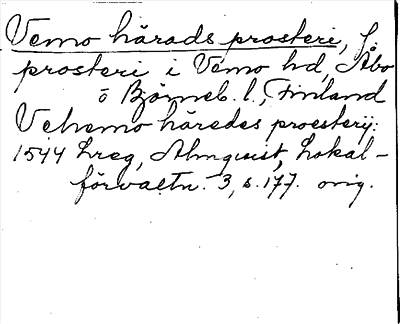 Vemo härads prosteri, f.
prosteri i Vemo hd, Åbo
o Björneb. l., Finland
Vehemo häredes proesterij:
1544 Lreg, Almquist, Lokal-
förvaltn. 3, s. 177. orig.